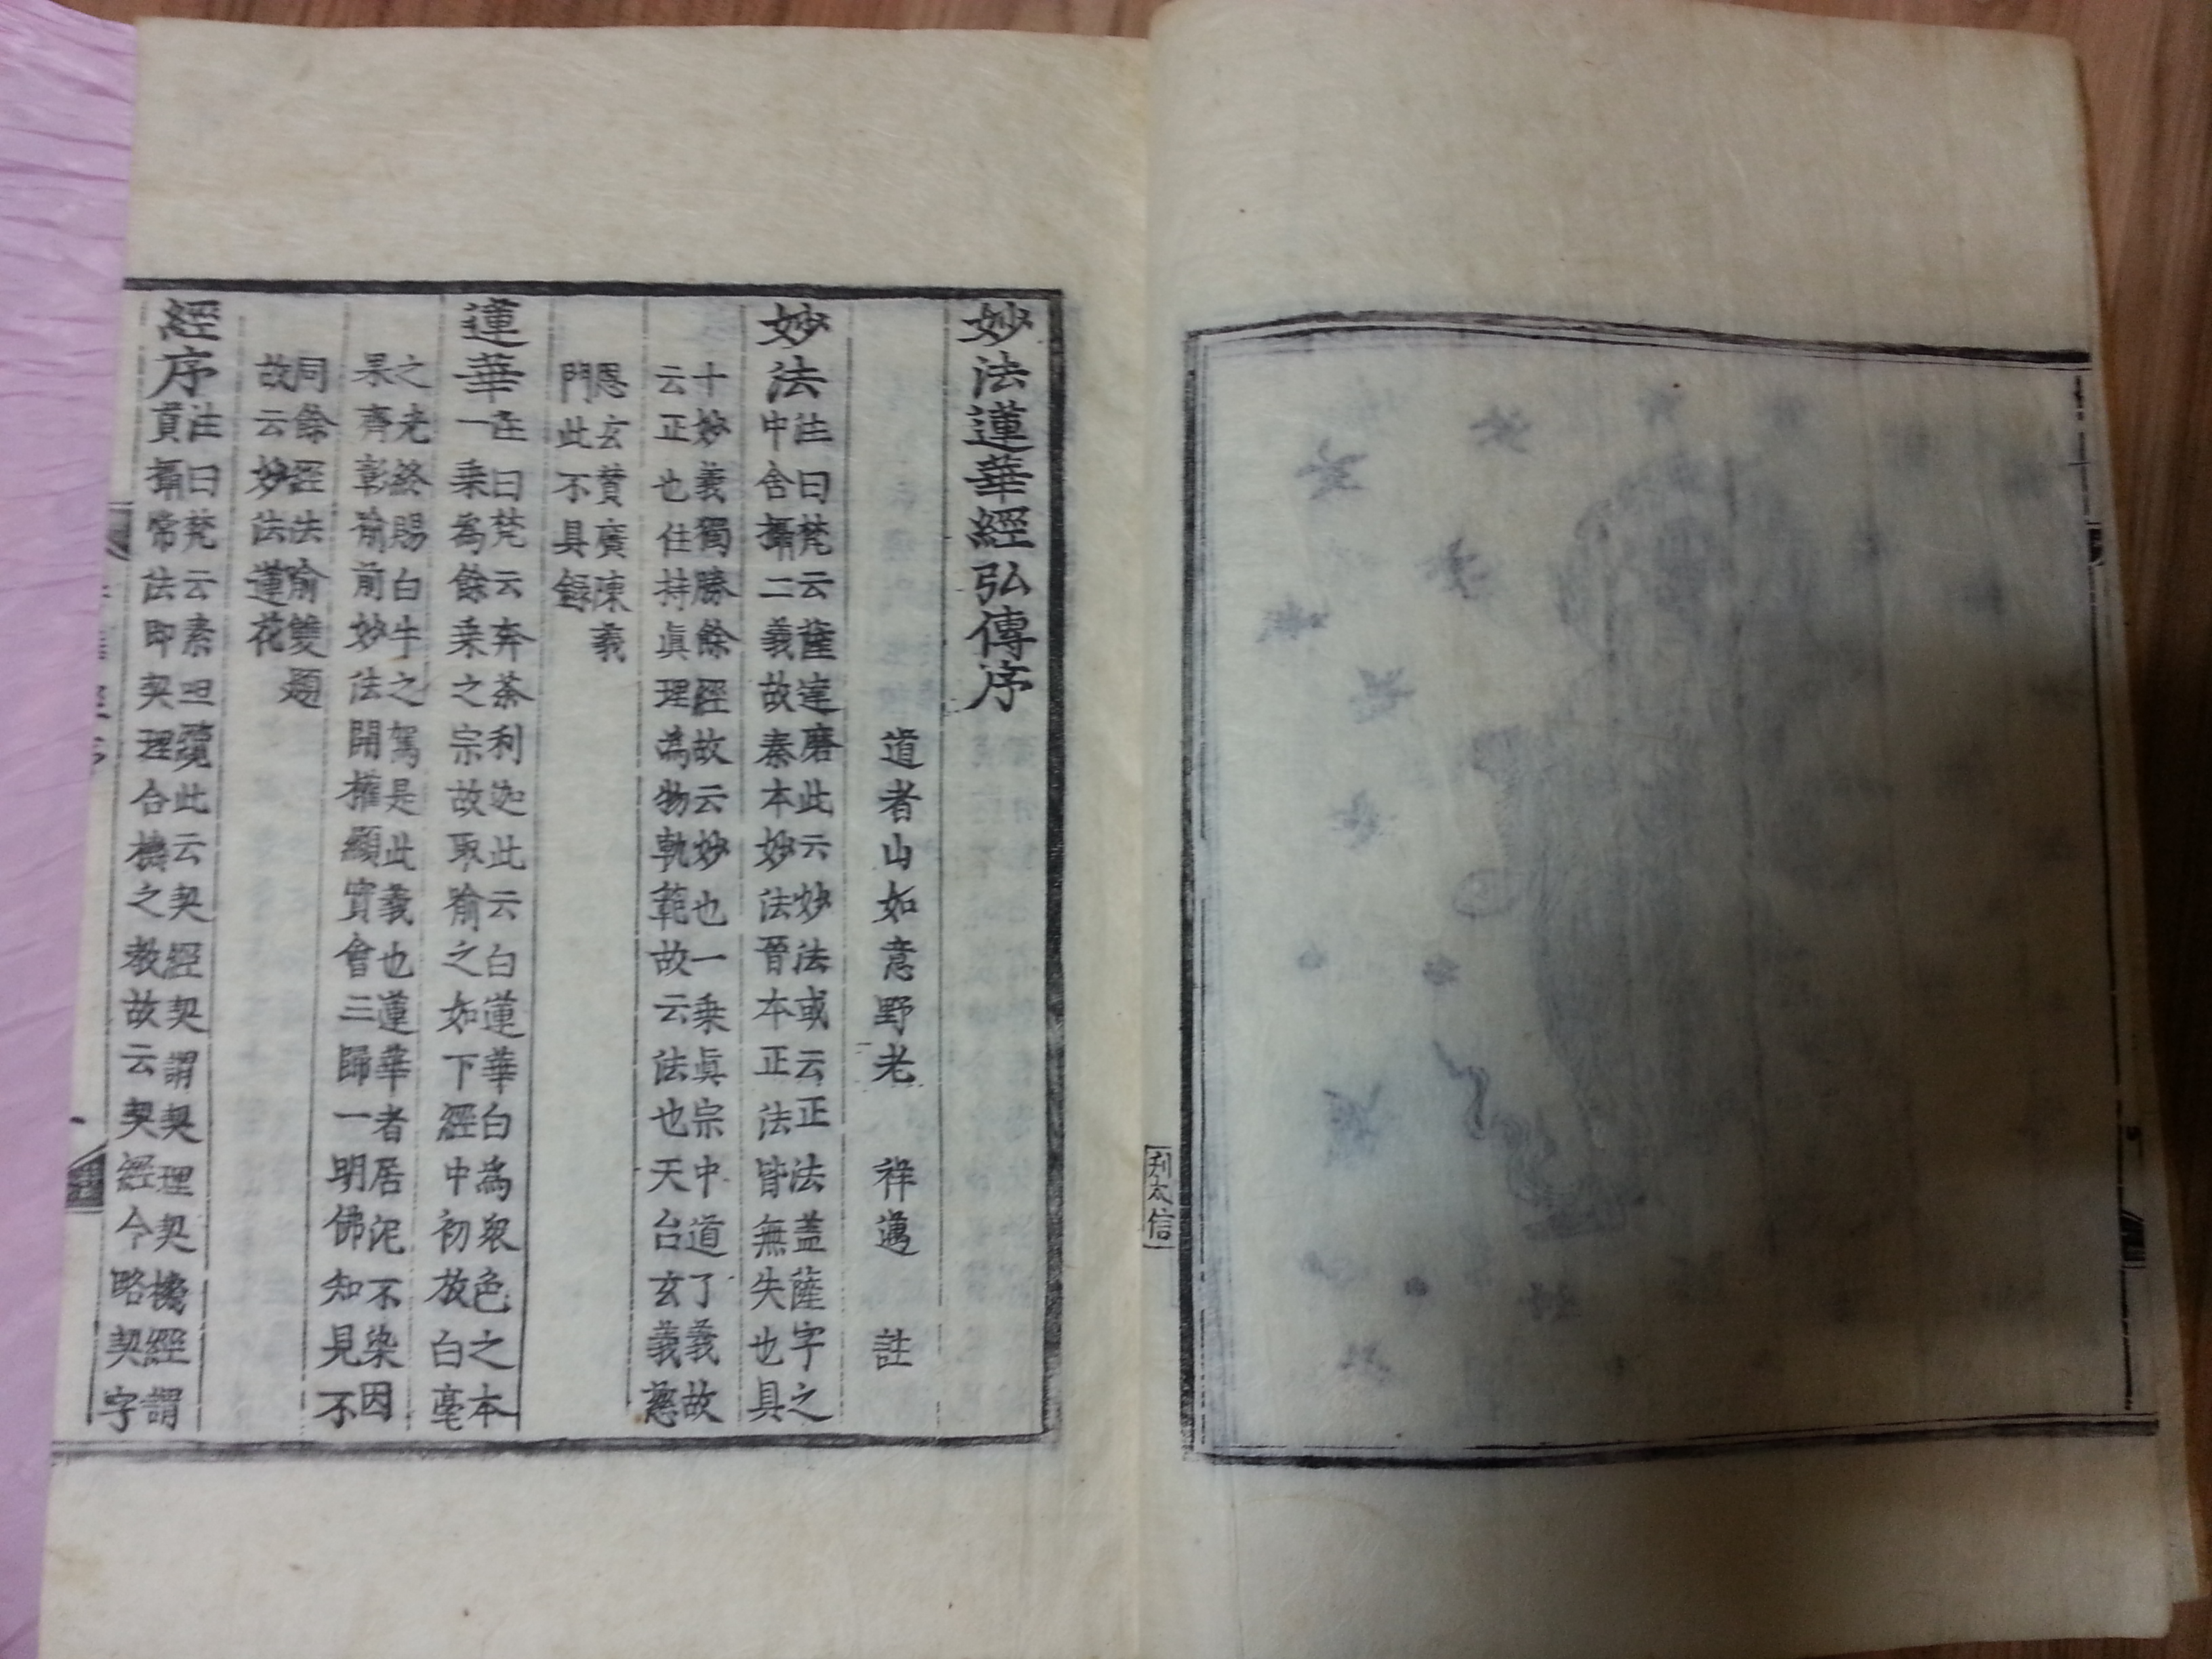 妙法蓮華經弘傳序
道者山如意野老 祥邁 註
妙法
註曰梵云薩達磨此云妙法或云正法盖薩字之
中含攝二義故秦本妙法晉本正法皆無失也具
十妙義獨勝餘經故云妙也一乗眞宗中道了義故
云正也住持眞理為物軌範故云法也天台玄義慈
恩玄賛廣陳義
門此不具録
蓮華
註曰梵云奔茶利迦此云白蓮華白為衆色之本
一乗為餘乗之宗故取喻之如下經中初放白毫
之光終賜白牛之駕是此義也蓮華者居泥不染因
果齊彰喻前妙法開權顯實會三歸一明佛知見不
同餘經法喻雙題
故云妙法蓮花
經序
註曰梵云素呾纜此云契經契謂契理契機經謂
貫攝常法即契理合機之教故云契經今略契字
刘太信